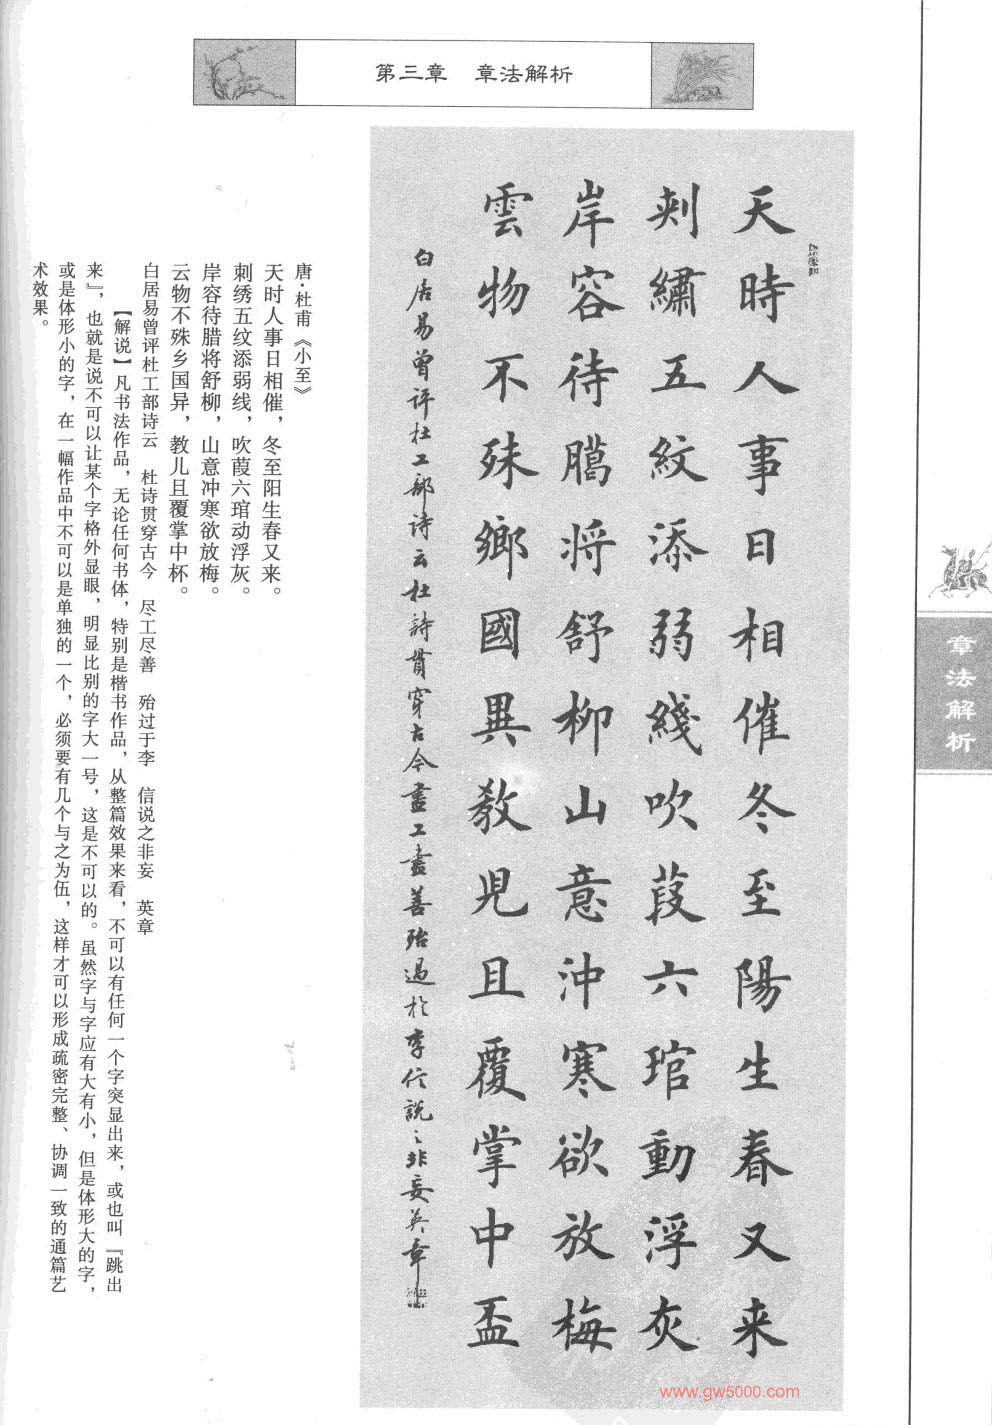 第三章 章法解析
天時人事日相催冬至陽生春又来
刺繡五紋添弱綫吹葭六琯動浮灰
岸容待臈将舒柳山意沖寒欲放梅
雲物不殊鄉國異教児且覆掌中盃
白居易曾评杜工部诗云杜詩貫穿古今盡工盡善殆過於李信說之非妄英章
唐·杜甫《小至》
天时人事日相催，冬至阳生春又来。
刺绣五纹添弱线，吹葭六琯动浮灰。
岸容待腊将舒柳，山意冲寒欲放梅。
云物不殊乡国异，教儿且覆掌中杯。
白居易曾评杜工部诗云 杜诗贯穿古今 尽工尽善 殆过于李 信说之非妄 英章
【解说】凡书法作品，无论任何书体，特别是楷书作品，从整篇效果来看，不可以有任何一个字突显出来，或也叫『跳出
来』，也就是说不可以让某个字格外显眼，明显比别的字大一号，这是不可以的。虽然字与字应有大有小，但是体形大的字，
或是体形小的字，在一幅作品中不可以是单独的一个，必须要有几个与之为伍，这样才可以形成疏密完整、协调一致的通篇艺
术效果。
章法解析
www.gw5000.com